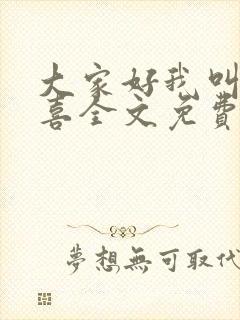 大家好我叫
喜全文免費
夢想無可取代